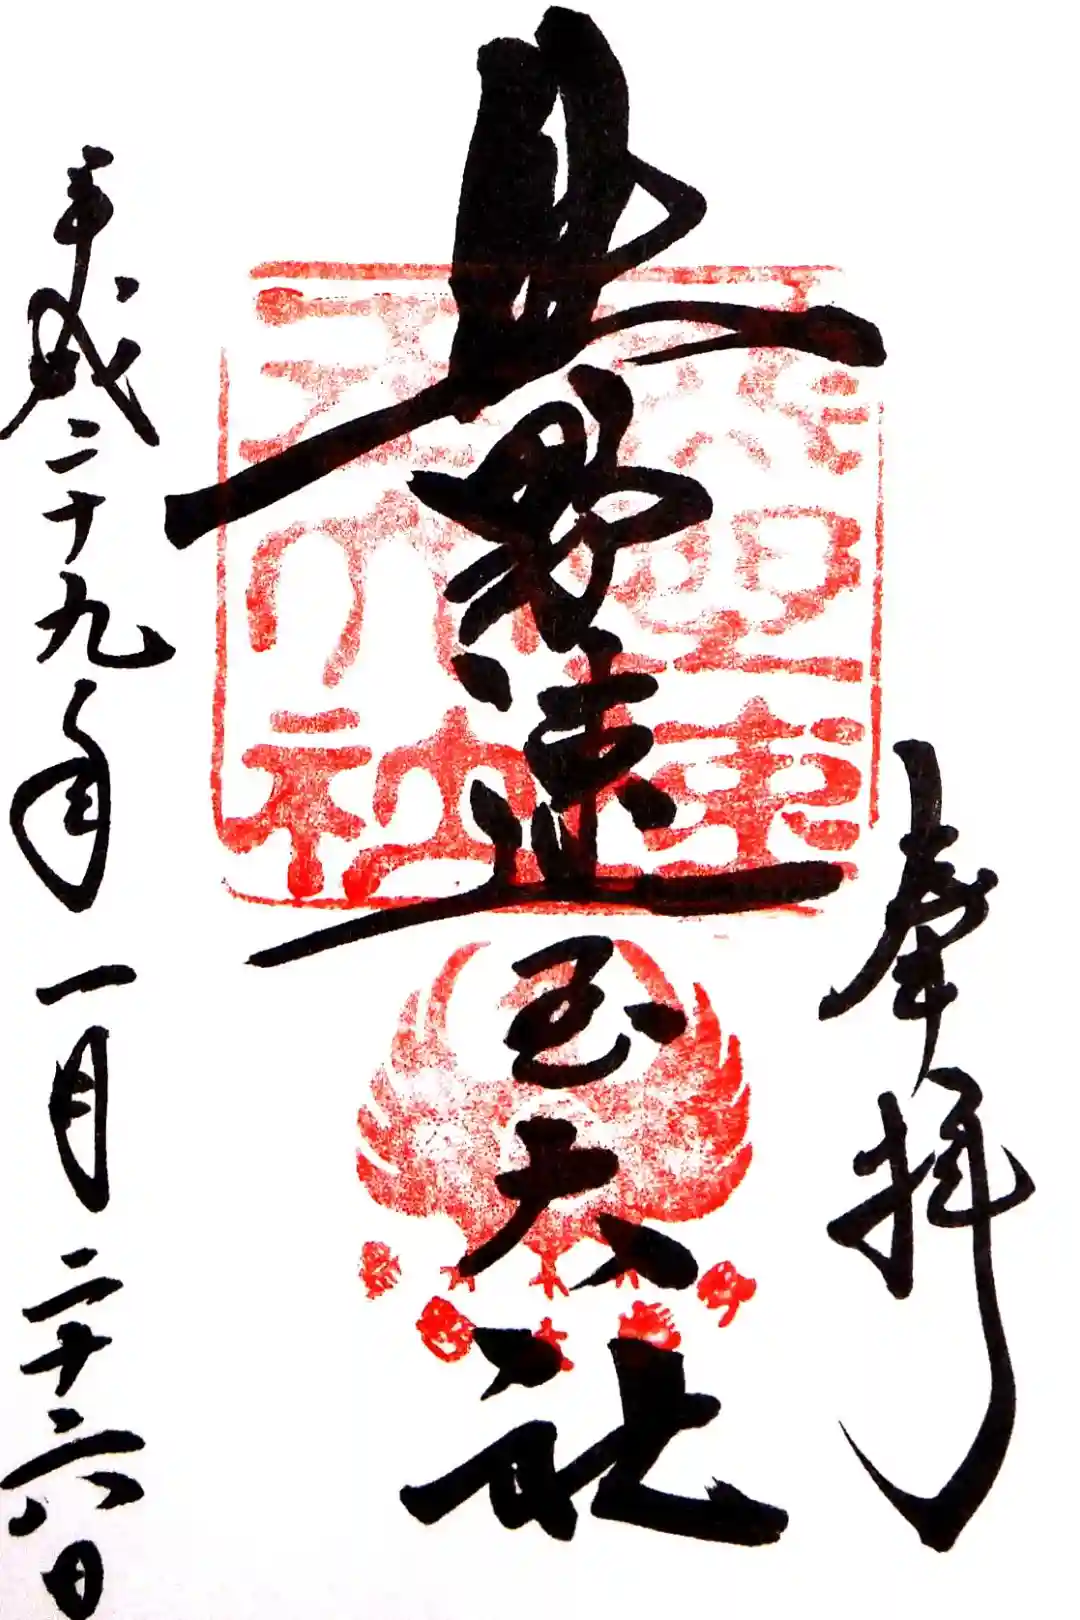 奉拝
熊野速玉大社
熊野速
玉大社
平成二十九年一月二十六日